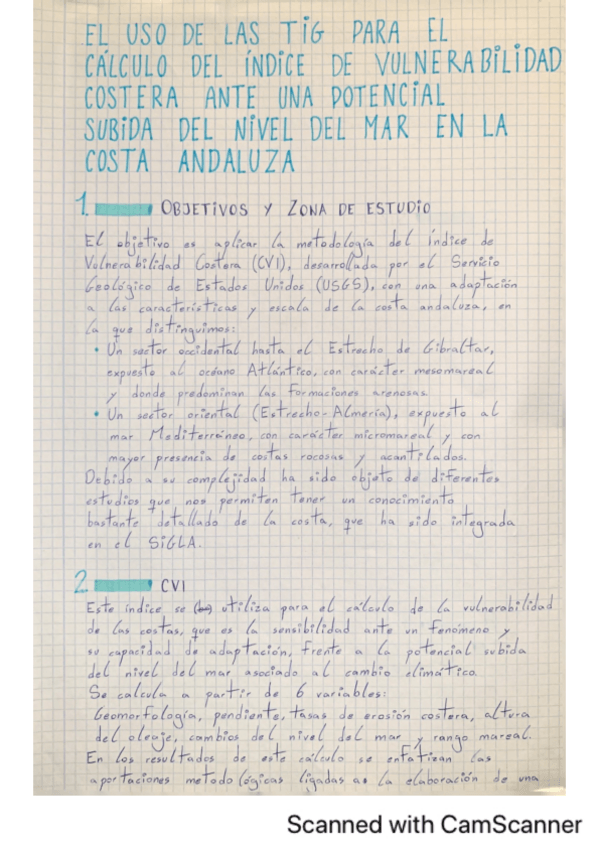 EL USO DE LAS TIG PARA EL
CÁLCULO DEL ÍNDICE DE VULNERABILIDAD
COSTERA ANTE UNA POTENCIAL
SUBIDA DEL NIVEL DEL MAR EN LA
COSTA ANDALUZA
1. OBJETIVOS Y ZONA DE ESTUDIO
El objetivo es aplicar la metodología del índice de
Vulnerabilidad Costera (CVI), desarrollada por el Servicio
Geológico de Estados Unidos (USGS), con una adaptación
a las características y escala de la costa andaluza, en
la que distinguimos:
• Un sector occidental hasta el Estrecho de Gibraltar,
expuesto al océano Atlántico, con carácter mesomareal
y donde predominan las formaciones arenosas.
• Un sector oriental (Estrecho-Almería), expuesto al
mar Mediterráneo, con carácter micromareal y con
mayor presencia de costas rocosas y acantilados.
Debido a su complejidad ha sido objeto de diferentes
estudios que nos permiten tener un conocimiento
bastante detallado de la costa, que ha sido integrada
en el SIGLA.
2. CVI
Este índice se utiliza para el cálculo de la vulnerabilidad
de las costas, que es la sensibilidad ante un fenómeno y
su capacidad de adaptación, frente a la potencial subida
del nivel del mar asociado al cambio climático.
Se calcula a partir de 6 variables:
Geomorfología, pendiente, tasas de erosión costera, altura
del oleaje, cambios del nivel del mar y rango mareal.
En los resultados de este cálculo se enfatizan las
aportaciones metodológicas ligadas a la elaboración de una
Scanned with CamScanner